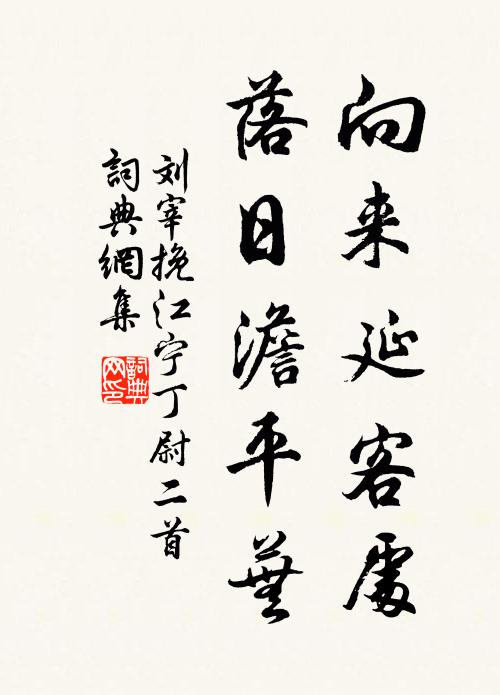 向来延客處
落日澹平蕪
刘宰挽江宁丁尉二首
詞典網集
詞典网印